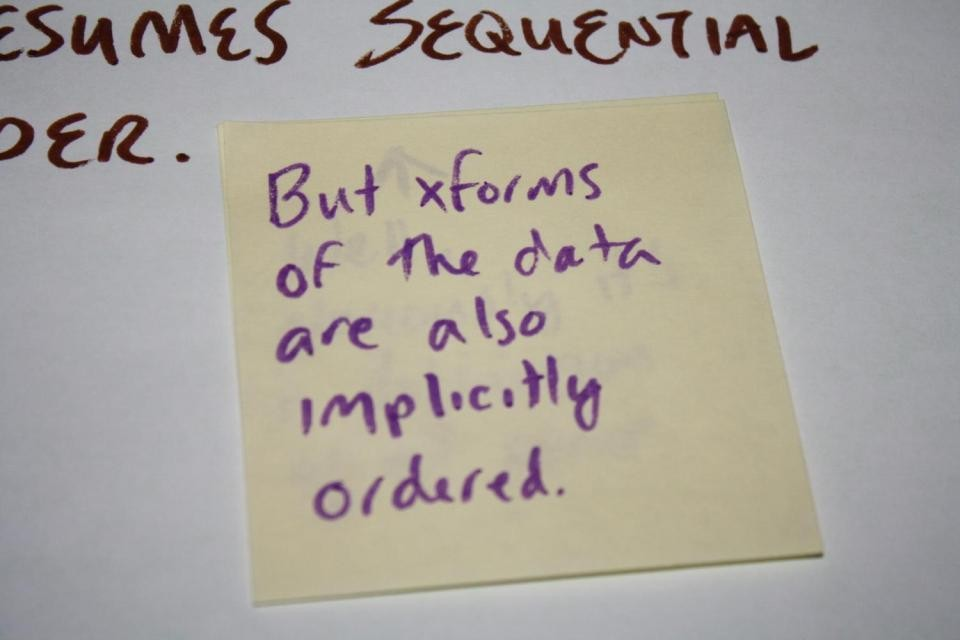 ESUMES SEQUENTIAL
DER.
But xforms
of the data
are also
implicitly
ordered.